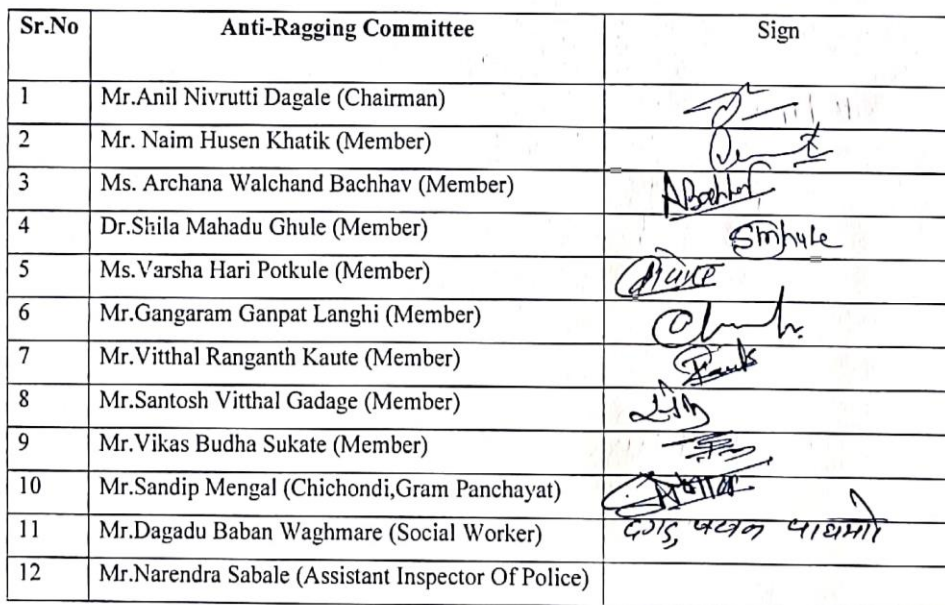 Sr.No Anti-Ragging Committee Sign
1 Mr.Anil Nivrutti Dagale (Chairman)
2 Mr. Naim Husen Khatik (Member)
3 Ms. Archana Walchand Bachhav (Member) ABachhav
4 Dr.Shila Mahadu Ghule (Member) Smhule
5 Ms.Varsha Hari Potkule (Member)
6 Mr.Gangaram Ganpat Langhi (Member)
7 Mr.Vitthal Ranganth Kaute (Member)
8 Mr.Santosh Vitthal Gadage (Member)
9 Mr.Vikas Budha Sukate (Member)
10 Mr.Sandip Mengal (Chichondi,Gram Panchayat)
11 Mr.Dagadu Baban Waghmare (Social Worker) दगडु बबन वाघमारे
12 Mr.Narendra Sabale (Assistant Inspector Of Police)